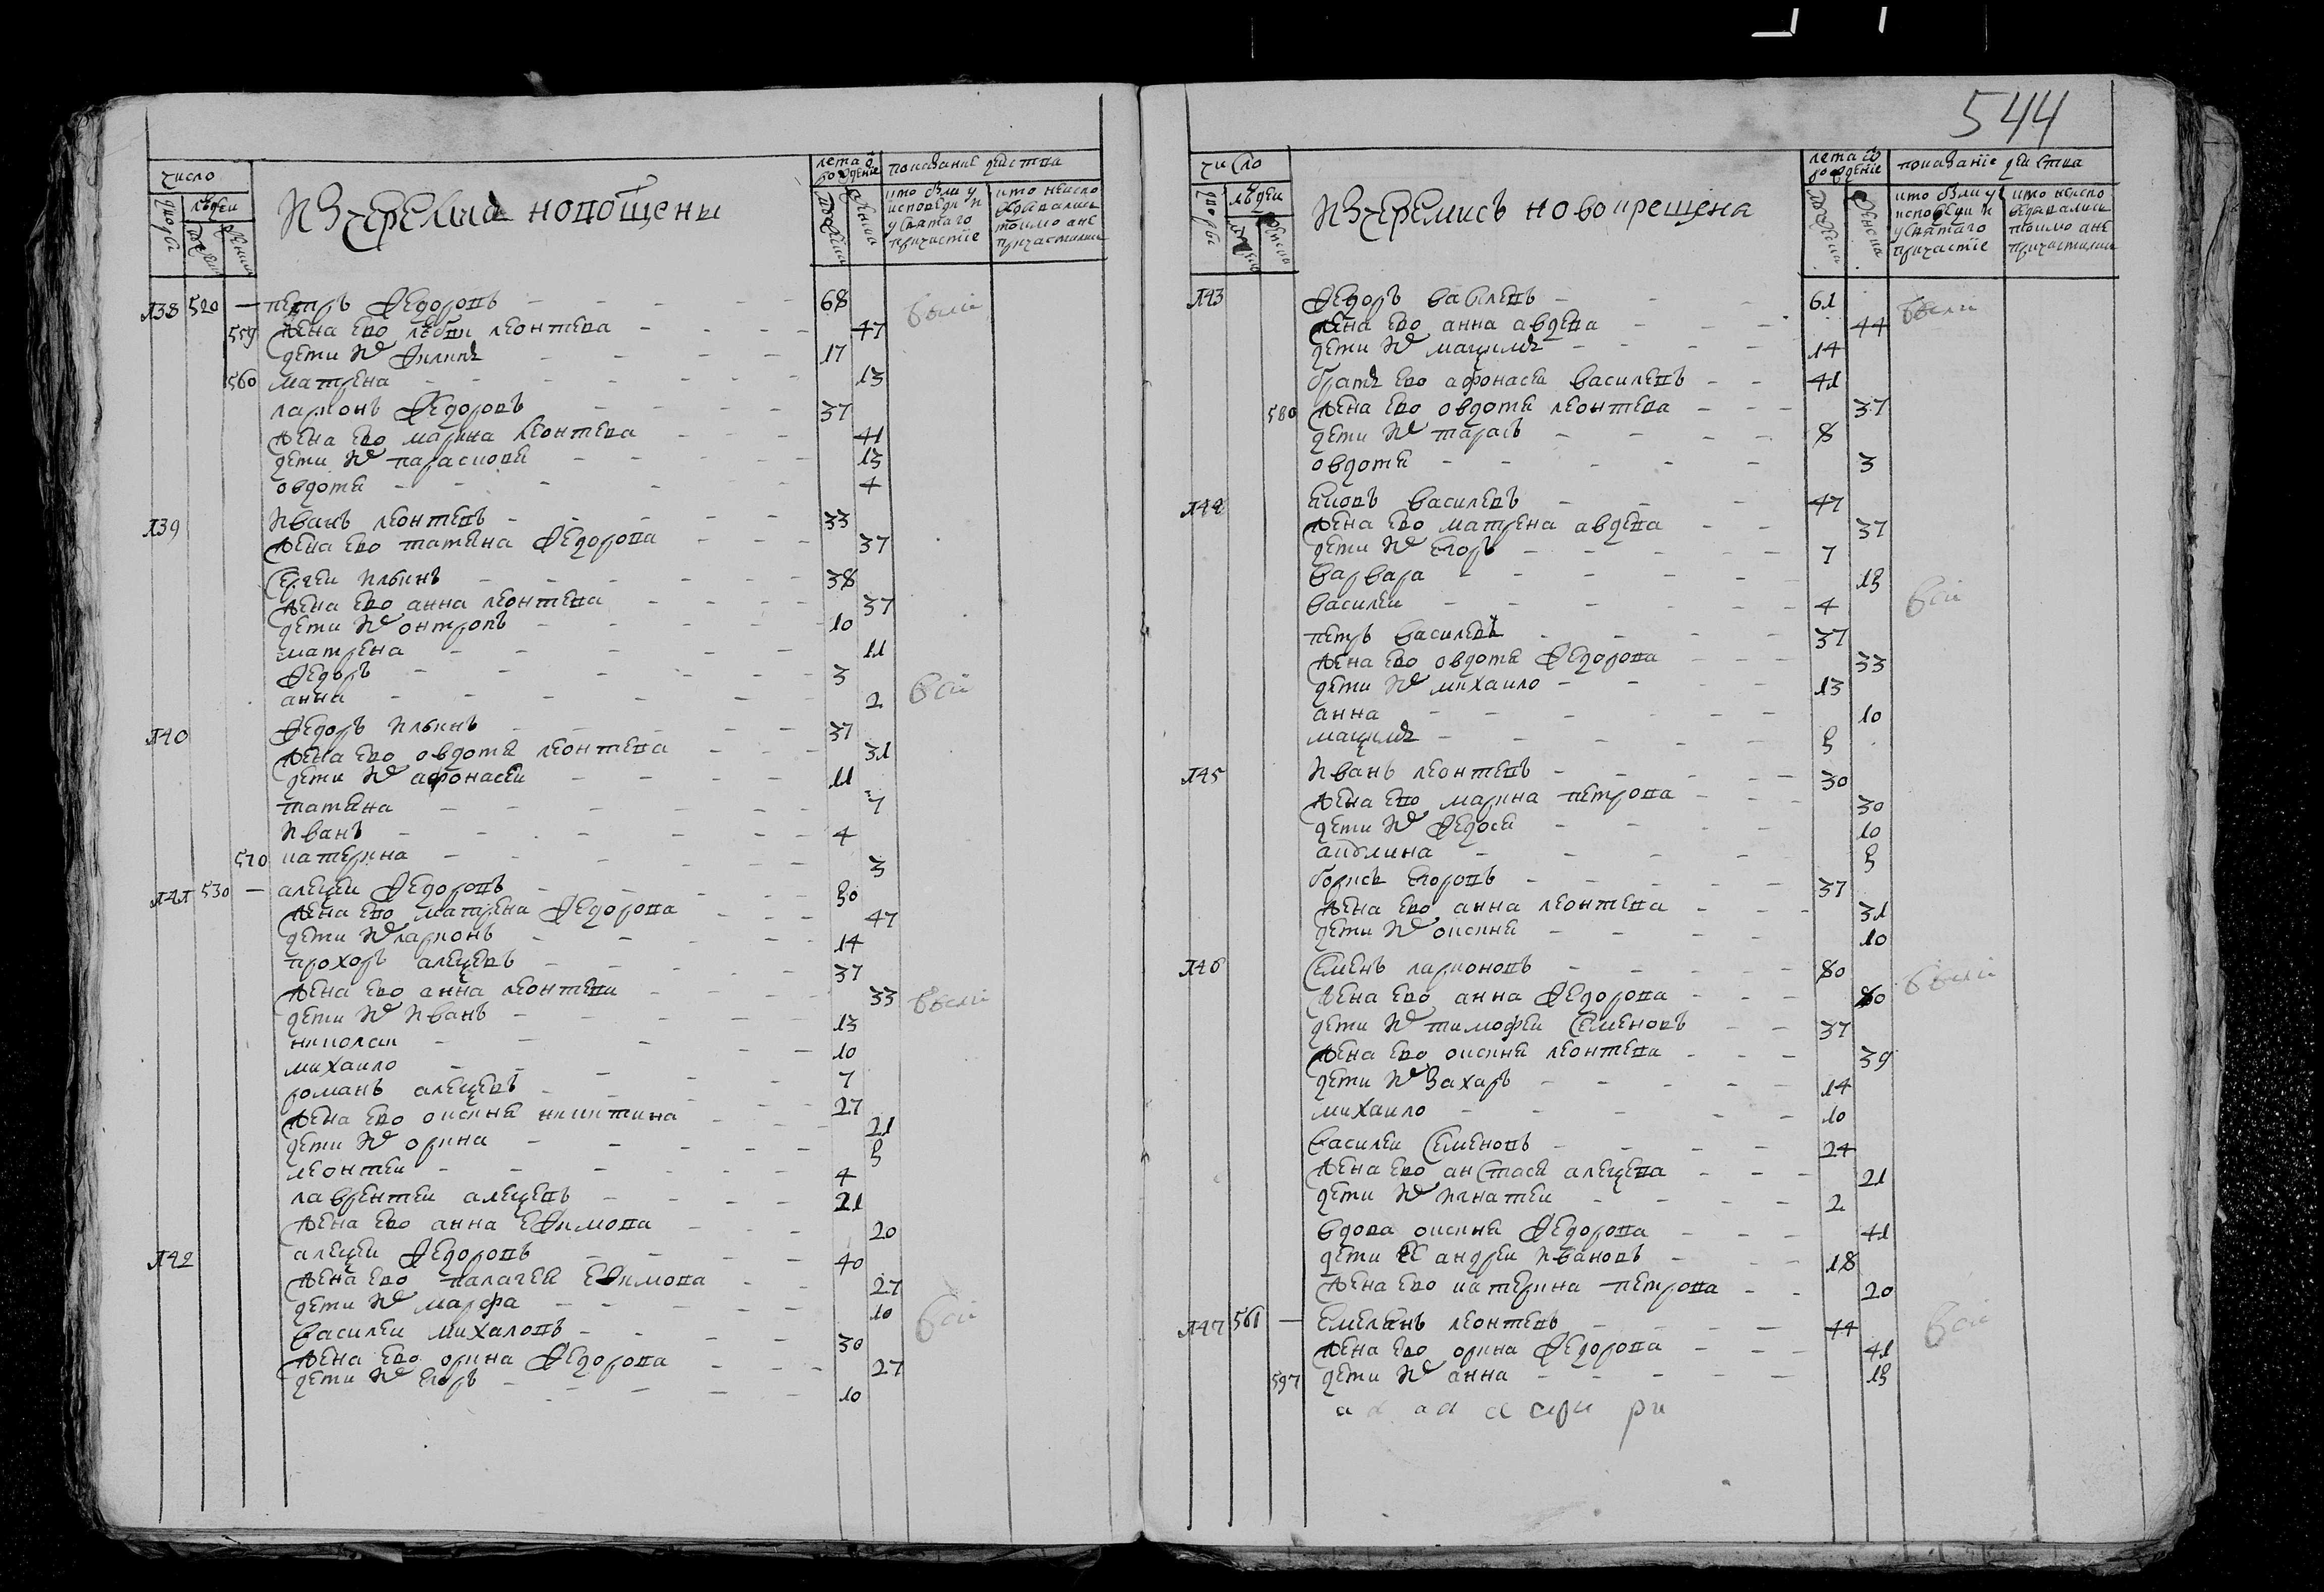 число
людеи
лета рождение
показание действа
дворы
мужеска
женска
мужеска
женска
кто были у исповеди и у святаго причастïе
кто неисповедавались токмо а не причастились
Из черемиса новокрещены
138 520 — петръ федоровъ 68 были
559 жена ево леонтева 47
дети их филипъ 17
560 матрена 13
ларионъ федоровъ 37
жена ево марина леонтева 41
дети их парасковя 13
овдотя 4
139 иванъ леонтевъ 33
жена ево татяна федорова 37
сергеи ильинъ 38
жена ево анна леонтева 37
дети их онтропъ 10
матрена 11
федоръ 3
анна 2 были
140 федоръ ильинъ 37
жена ево овдотя леонтева 31
дети их афонасеи 11
татяна 7
иванъ 4
570 катерина 3
141 530 — алексеи федоровъ 50
жена ево матрена федорова 47
дети их ларионъ 14
прохоръ алексевъ 37
жена ево анна леонтева 33 были
дети их иванъ 13
николаи 10
михаило 7
романъ алексевъ 27
жена ево оксиня никитина 21
дети их орина 5
леонтеи 4
лаврентеи алексевъ 21
жена ево анна ефимова 20
142 алексеи федоровъ 40
жена ево палагея ефимова 27
дети их марфа 10 были
василеи михаловъ 30
жена ево орина федорова 27
дети их егоръ 10
544
число
людеи
лета рождение
показанïе действа
дворы
мужеска
женска
мужеска
женска
кто были у исповеди и у святаго причастïе
кто неисповедавались токмо а не причастились
Из черемисъ новокрещена
143 федоръ василевъ 61 были
жена ево анна авдева 44
дети их максимъ 14
братъ ево афонасеи василевъ 41
580 жена ево овдотя леонтева 37
дети их тарасъ 8
овдотя 3
144 яковъ василевъ 47
жена ево матрена авдева 37
дети их егоръ 7
варвара 15
василеи 4 были
петръ василевъ 37
жена ево овдотя федорова 33
дети их михаило 13
анна 10
максимъ 5
145 иванъ леонтевъ 30
жена ево марина петрова 30
дети их федося 10
акулина 5
борисъ егоровъ 37
жена ево анна леонтева 31
дети их оксиня 10
146 семенъ ларионовъ 80 были
жена ево анна федорова 80
дети их тимофеи семеновъ 37
жена ево оксиня леонтева 39
дети их захаръ 14
михаило 10
василеи семеновъ 24
жена ево анстася алексева 21
дети их игнатеи 2
вдова оксиня федорова 41
дети ее андреи ивановъ 18
жена ево катерина петрова 20
147 561 — емелянъ леонтевъ 44 были
жена ево орина федорова 41
597 дети их анна 15